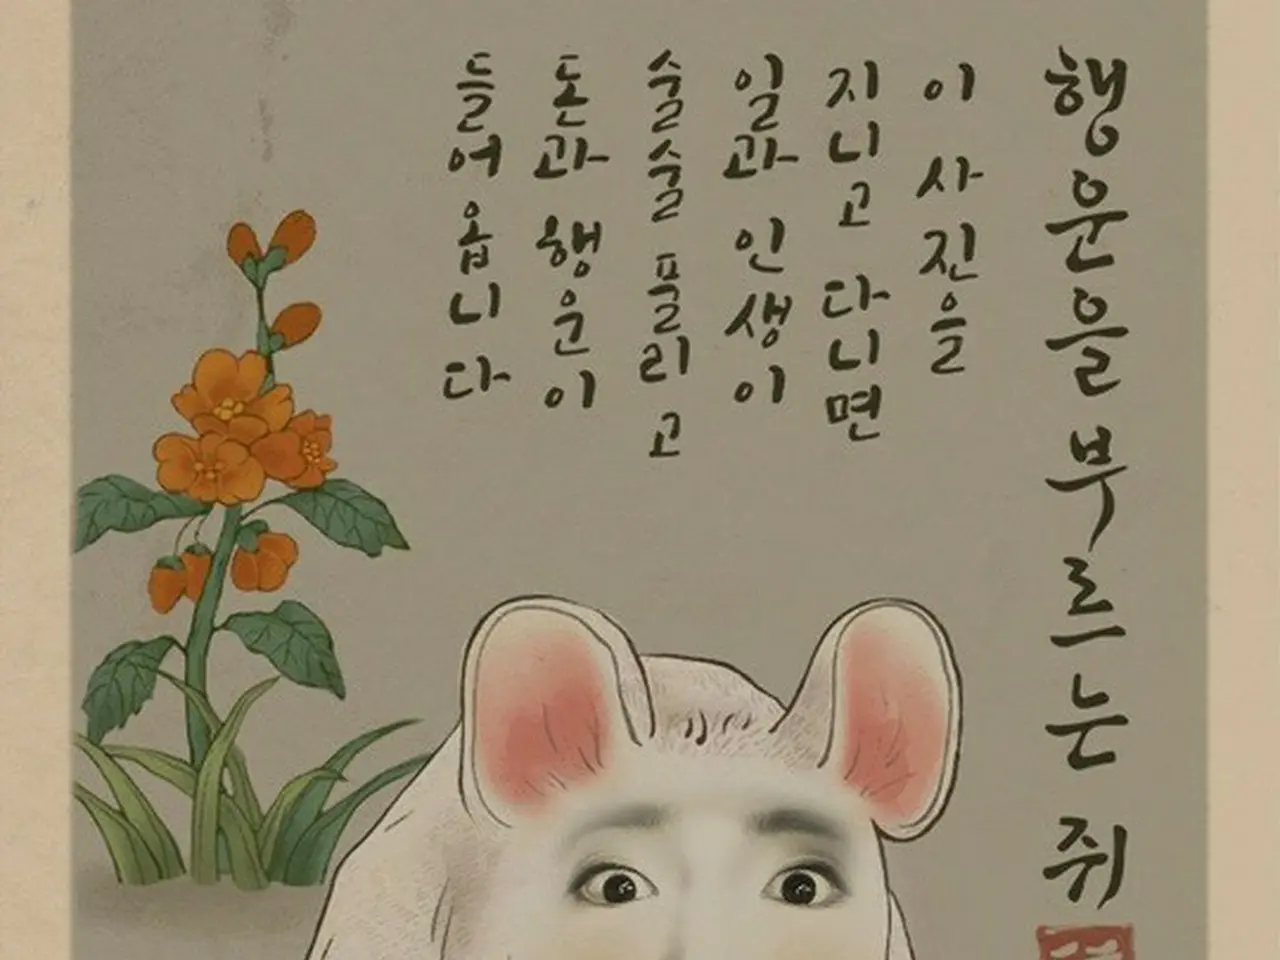 행운을 부르는 쥐
이 사진을
지니고 다니면
일과 인생이
술술 플리고
돈과 행운이
들어옵니다